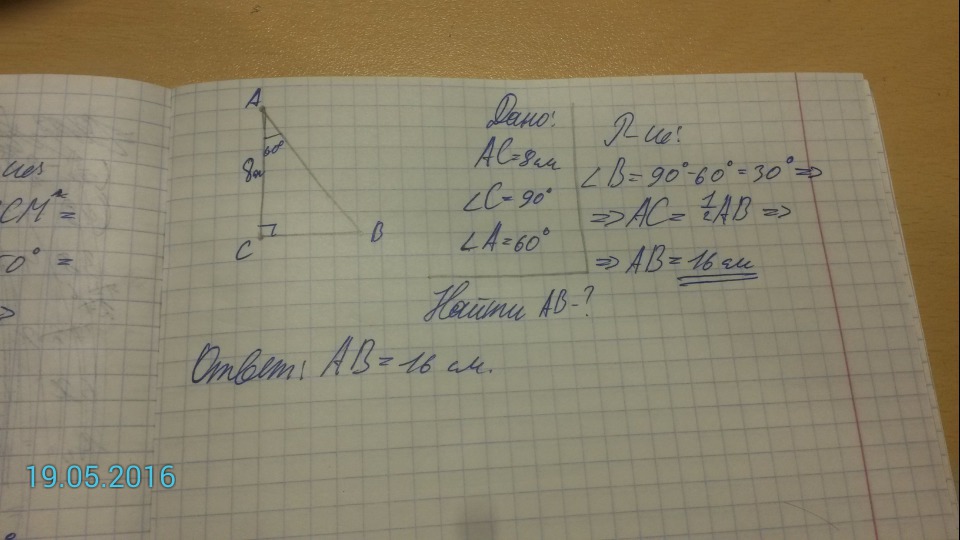 A
60°
8см
C
B
Дано:
AC=8см
∠C=90°
∠A=60°
Найти AB-?
Р-ие:
∠B=90°-60°=30° =>
=> AC= 1/2 AB =>
=> AB= 16 см
Ответ: AB=16 см.
CM =
0° =
19.05.2016